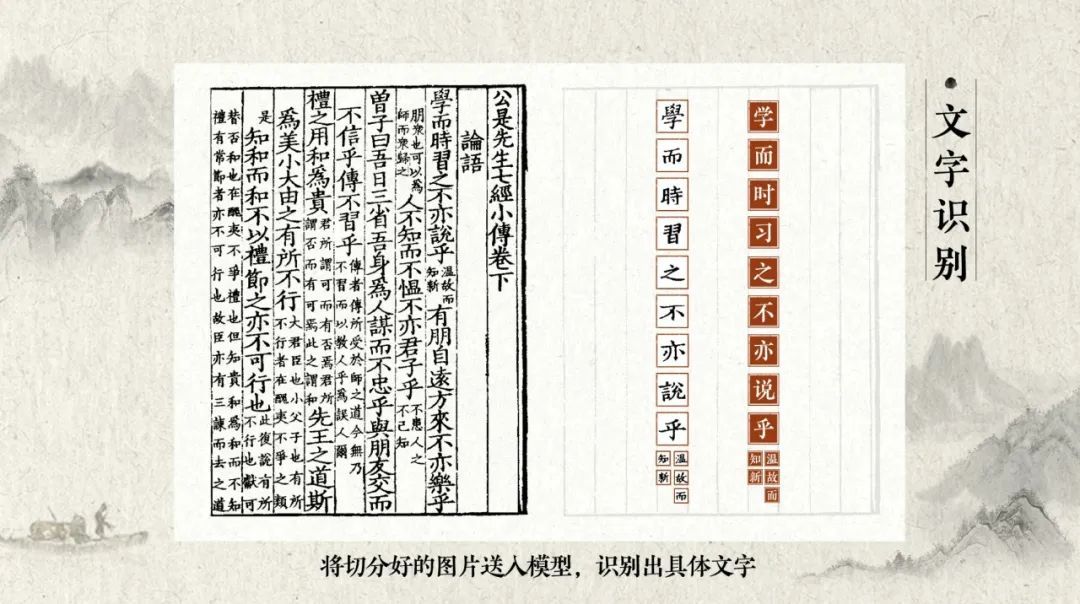 文字识别
公是先生七經小傳卷下
論語
學而時習之不亦說乎溫故而知新有朋自遠方來不亦樂乎
朋衆也可以爲師而衆歸之人不知而不慍不亦君子乎不患人之不己知
曾子曰吾日三省吾身爲人謀而不忠乎與朋友交而
不信乎傳不習乎傳者傳所受於師之道今無乃不習而以教人乎爲誤人爾
禮之用和爲貴君所謂可而有否焉君所謂否而有可焉此之謂和先王之道斯
爲美小大由之有所不行大君臣也小父子也有所不行者在醜夷不爭之類
是知和而和不以禮節之亦不可行也此復說有所不行也獻可
替否和也在醜夷不爭禮也但知貴和爲和而不知
禮有常節者亦不可行也故臣亦有三諫而去之道
学而时习之不亦说乎温故而知新
學而時習之不亦說乎溫故而知新
将切分好的图片送入模型，识别出具体文字